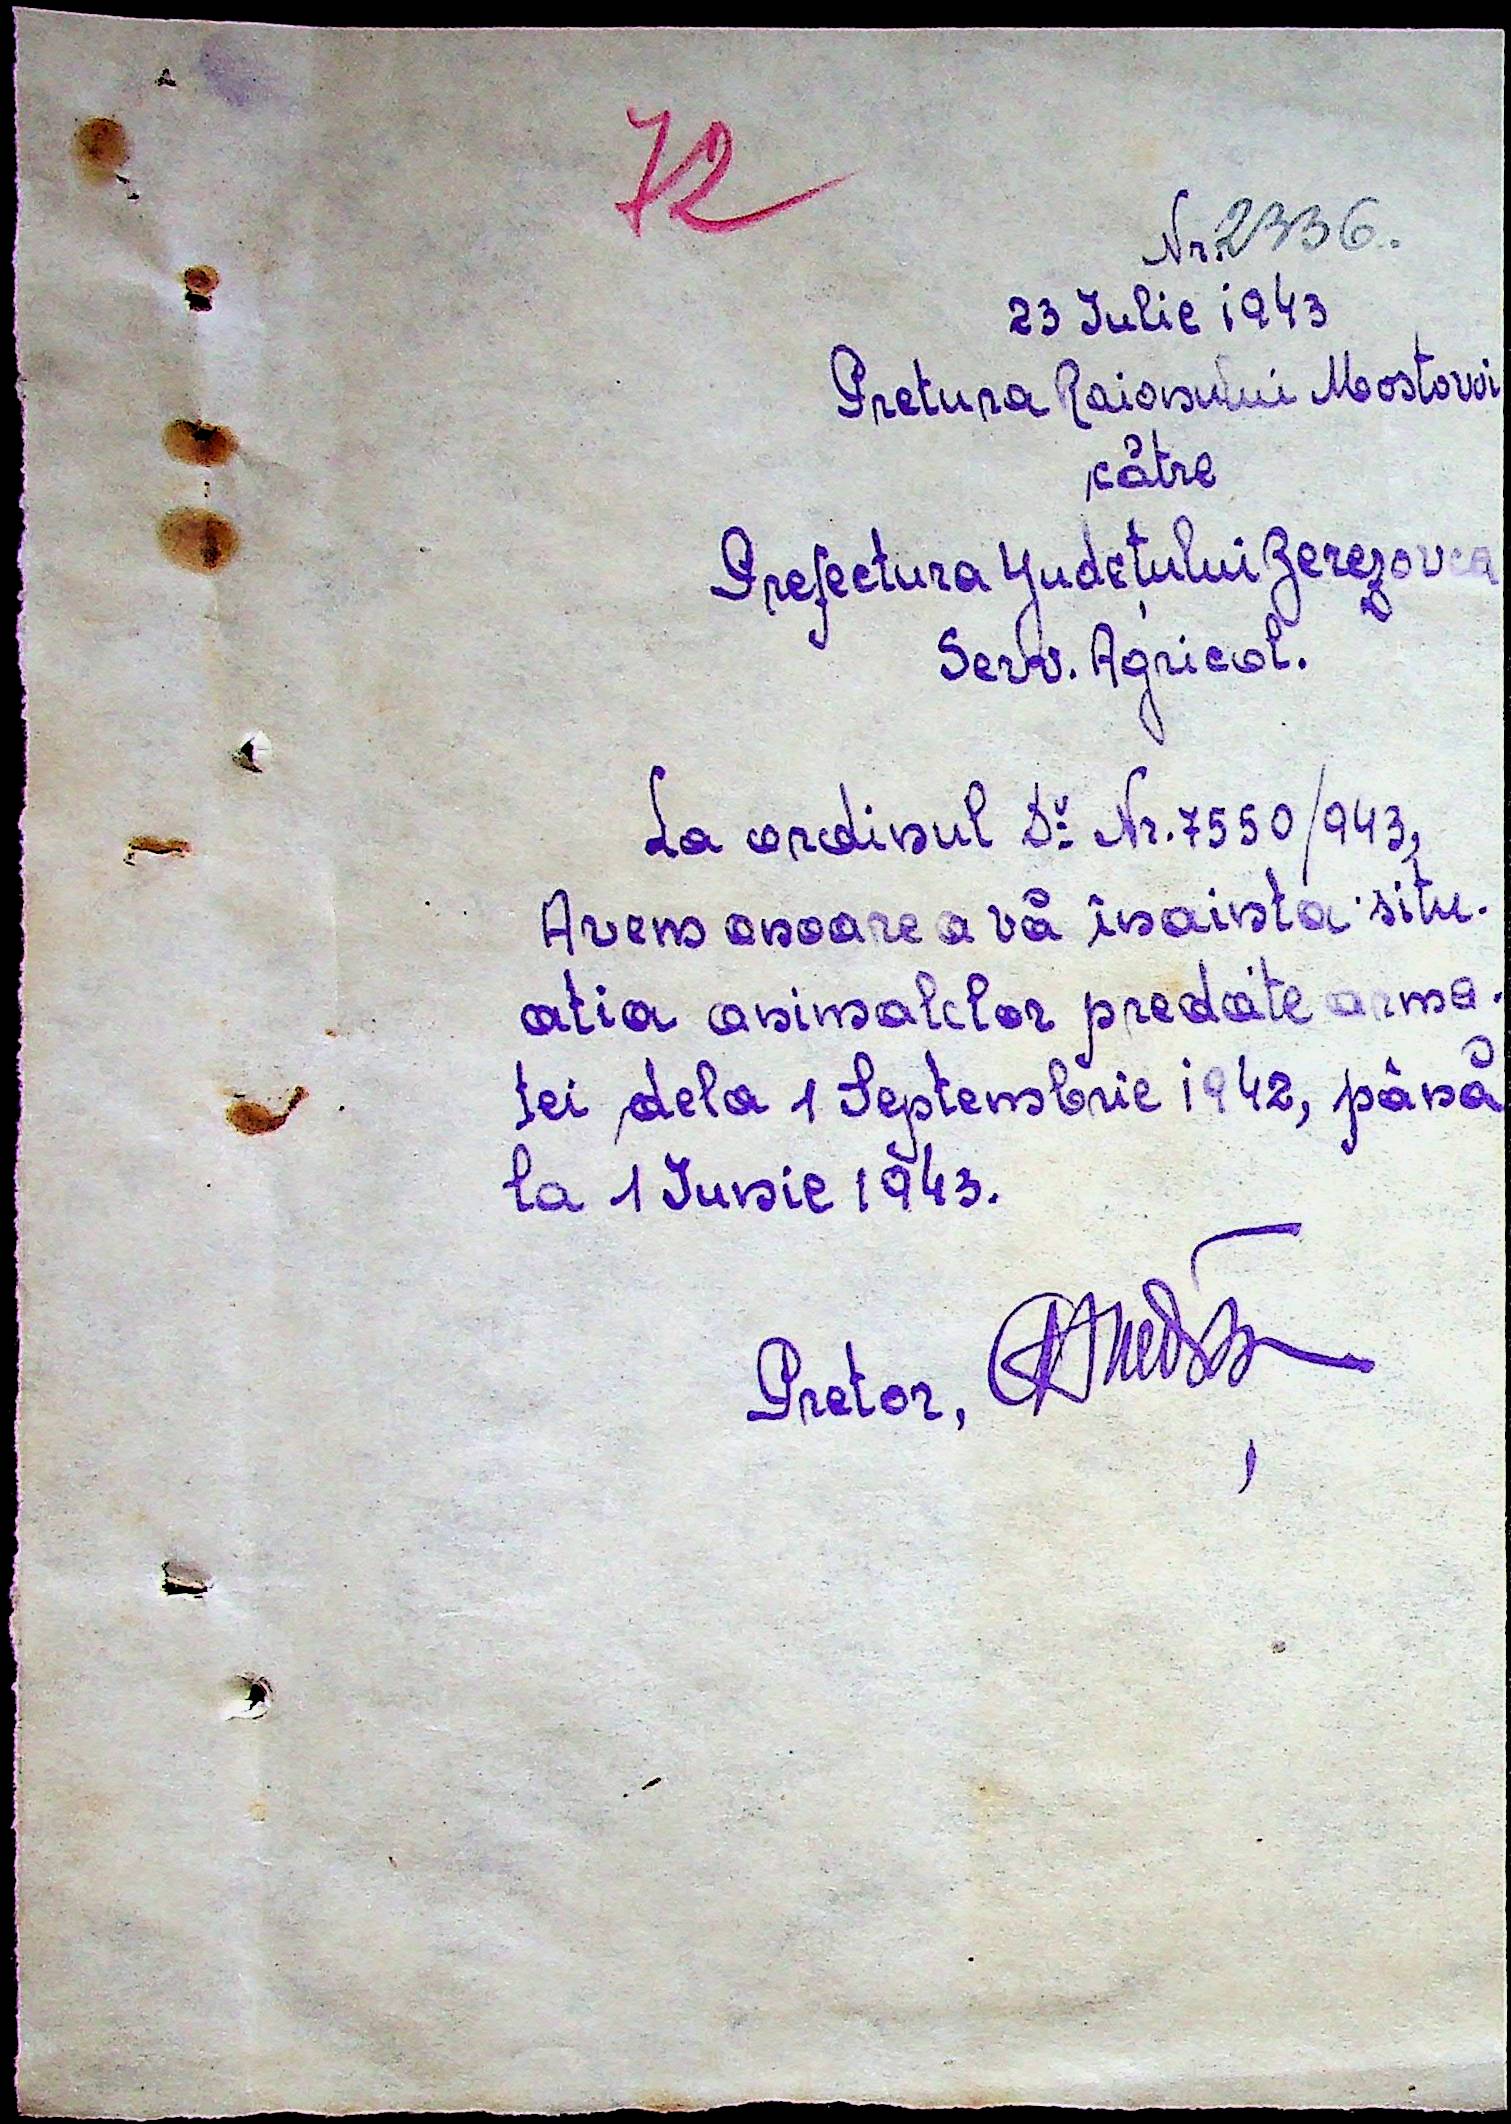 72
Nr. 2336.
23 Iulie 1943
Pretura Raionului Mostovoi
către
Prefectura Județului Berezovca
Serv. Agricol.
La ordinul Dv: Nr. 7550/943,
Avem onoare a vă înainta situ-
atia animalelor predate arma-
tei dela 1 Septembrie 1942, până
la 1 Iunie 1943.
Pretor,